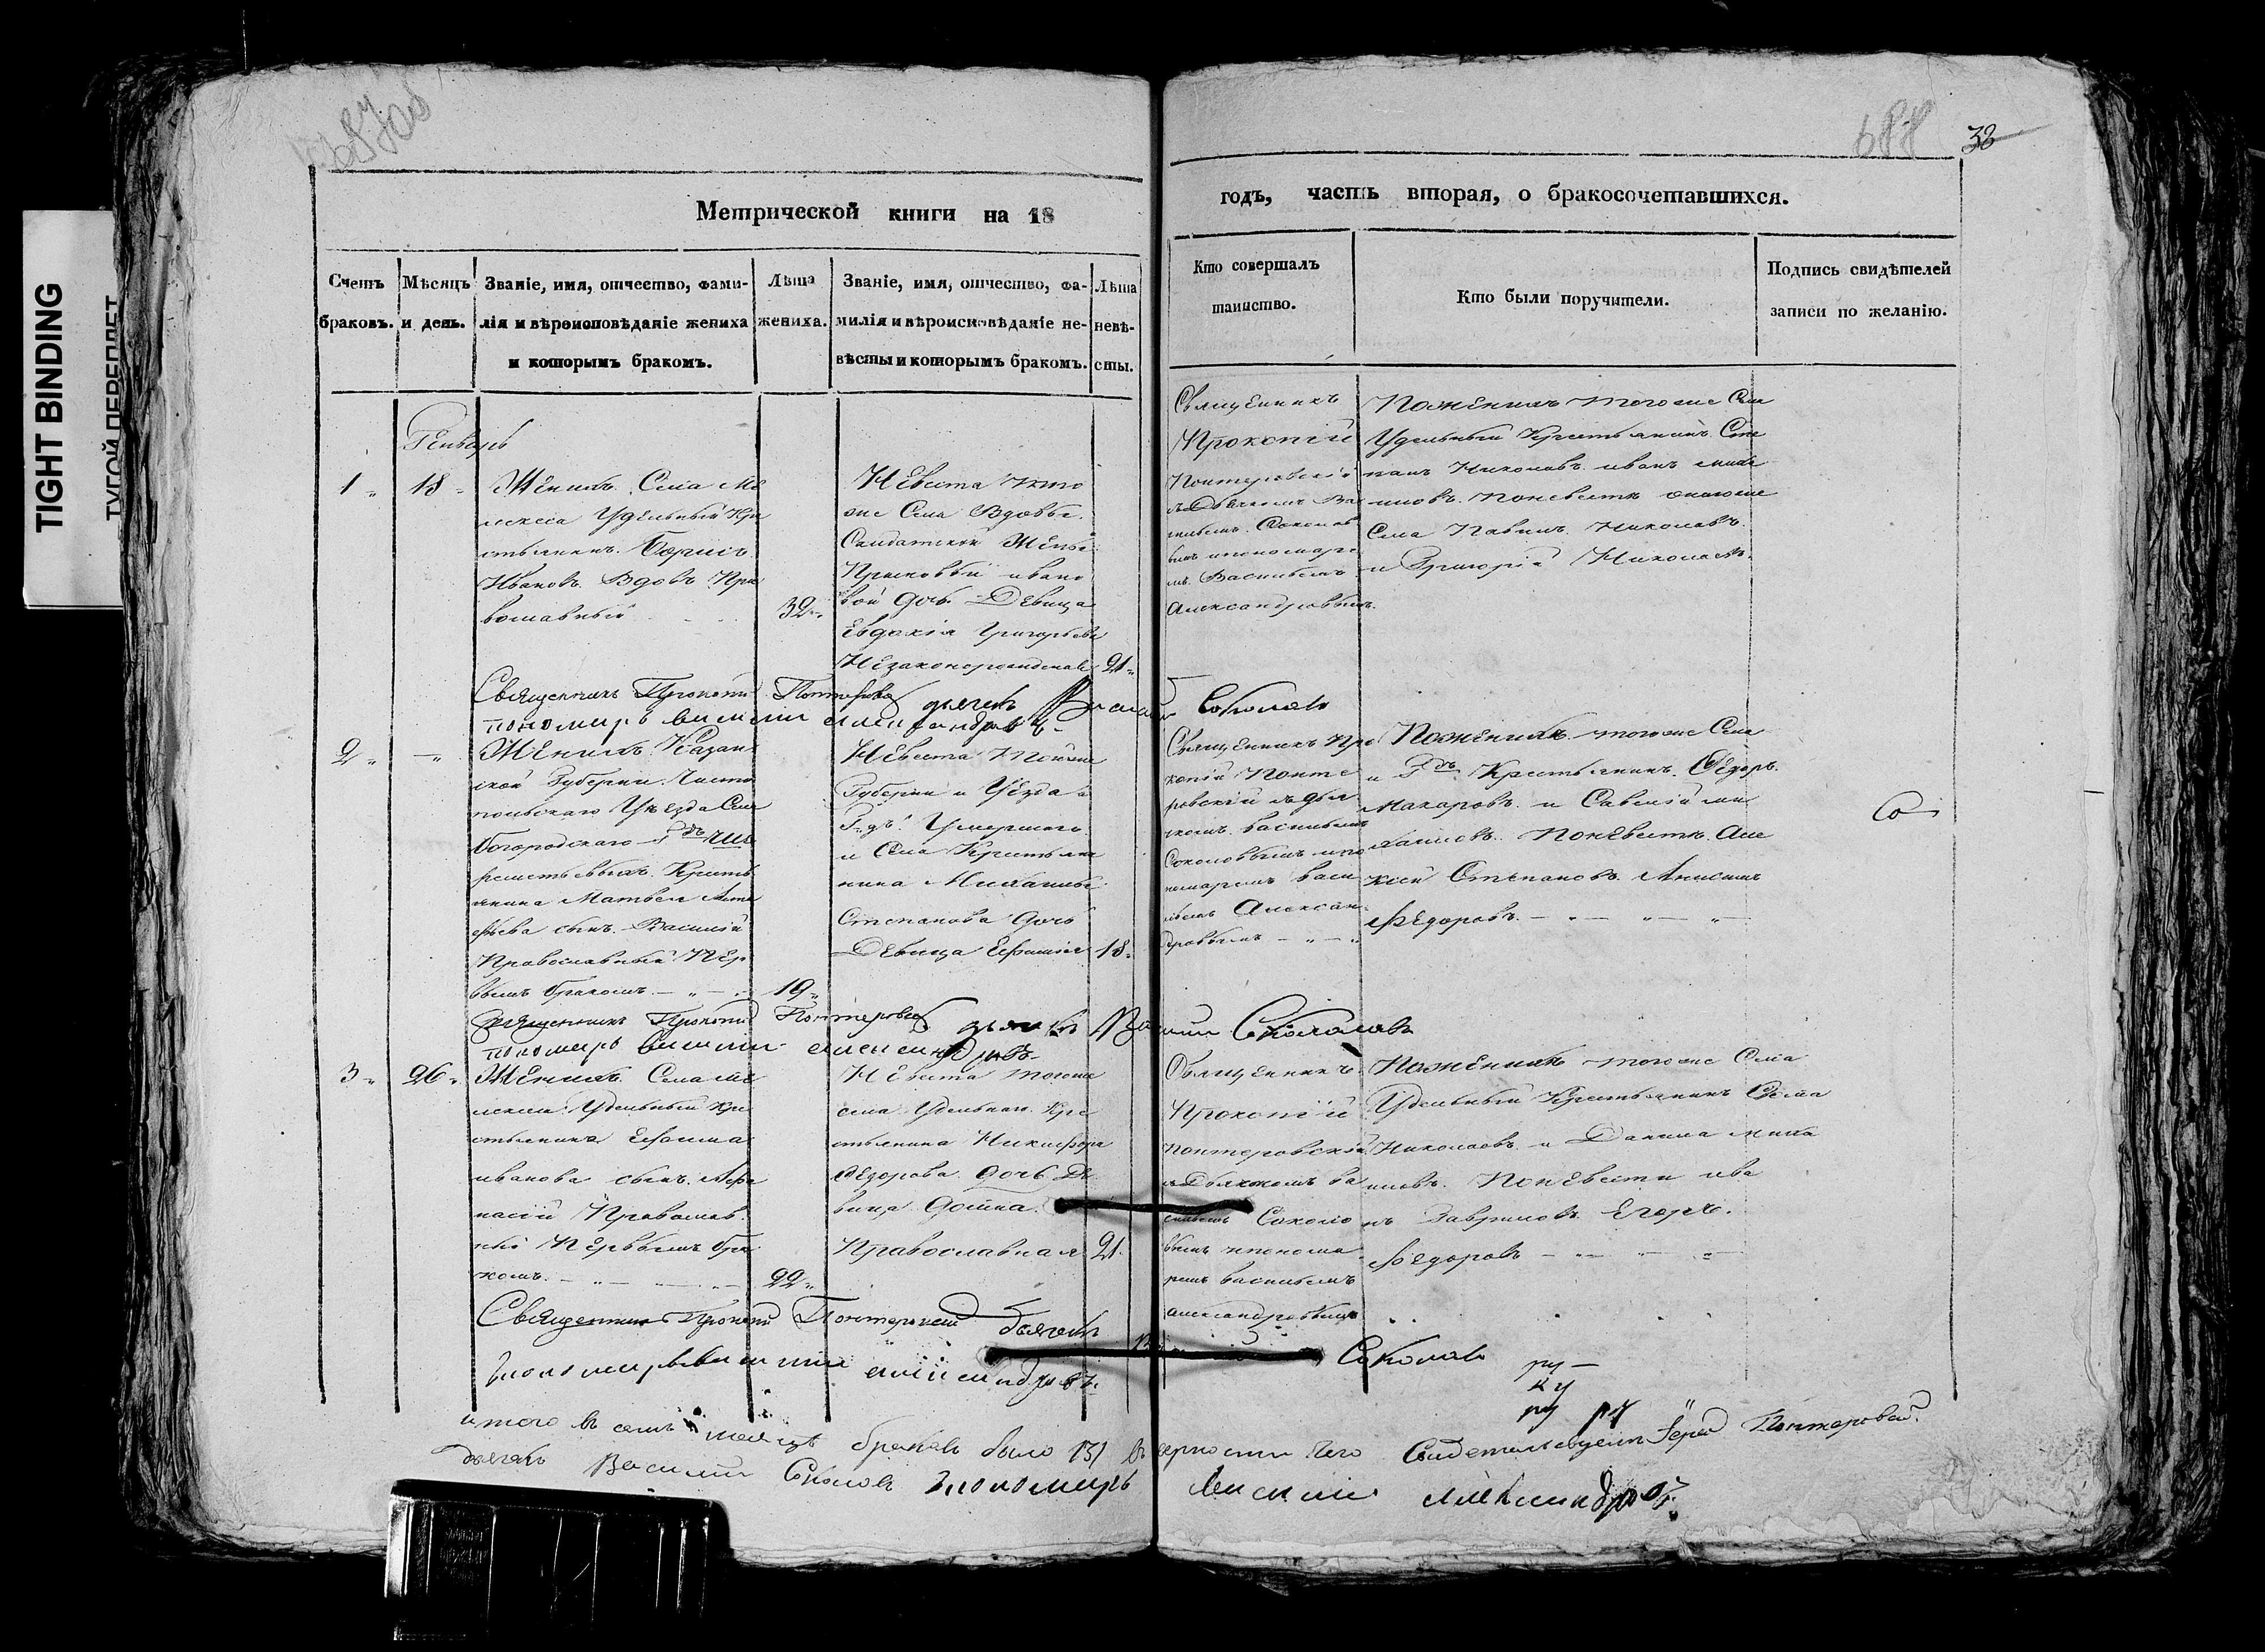 TIGHT BINDING
ТУГОЙ ПЕРЕПЛЕТ
688
38
Метрической книги на 18
годъ, часть вторая, о бракосочетавшихся.
Счетъ браковъ.
Мѣсяцъ и день.
Званіе, имя, отчество, фами-
лія и вѣроисповѣданіе жениха
и которымъ бракомъ.
Лѣта
жениха.
Званіе, имя, отчество, фа-
милія и вѣроисповѣданіе не-
вѣсты и которымъ бракомъ.
Лѣта
невѣ-
сты.
Кто совершалъ
таинство.
Кто были поручители.
Подпись свидѣтелей
записи по желанію.
Генварь
1
18
Женихъ Села Ме
лекеса Удельный Кре
стьянинъ Борисъ
Ивановъ Вдовъ Пра
вославный
32
Невеста того
же Села Вдовы
Солдатской Жены
Прасковьи Ивано
вой дочь Девица
Евдокія Григорьева
Незаконорожденная
21
Священникъ
Прокопій
Понтеровскій
съ Дьячкомъ Ва
сильемъ Соколо
вымъ и пономаре
мъ Васильемъ
Александровымъ
По Женихѣ того же Села
Удельный Крестьянинъ Сте
панъ Николаевъ Иванъ Миха
йловъ По невестѣ онаго же
Села Павелъ Николаевъ
и Григорій Николаевъ
Священникъ Прокопій Понтеровскій дьячекъ Василій Соколовъ
пономарь Василій Александровъ
2
Женихъ Казан
ской Губерніи Чисто
польскаго Уѣзда Села
Богородскаго
Крестья
нина Матвея
сынъ Василій
Православный Пер
вымъ бракомъ
19
Невеста Тойже
Губерніи и Уѣзда
и Села Крестья
нина Михайлы
Степанова дочь
Девица
18
Священникъ Про
копій Понте
ровскій съ дья
чкомъ Васильемъ
Соколовымъ и по
номаремъ Васи
льемъ Алексан
дровымъ
По Женихѣ того же Села
Крестьянинъ Ѳедоръ
Макаровъ и Савелій Ми
хайловъ По Невестѣ Але
ксей Степановъ Анисимъ
Ѳедоровъ
Священникъ Прокопій Понтеровскій дьячекъ Василій Соколовъ
пономарь Василій Александровъ
3
26
Женихъ Села Ме
лекеса Удельный Кре
стьянина Ефима
Иванова сынъ Афа
насій Православ
ный Первымъ бра
комъ
22
Невеста того же
села Удельнаго Кре
стьянина Никифора
Ѳедорова дочь Де
вица
Православная
21
Священникъ
Прокопій
Понтеровскій
съ Дьячкомъ Ва
сильемъ Соколо
вымъ и понома
ремъ Васильемъ
Александровымъ
По Женихѣ того же Села
Удельный Крестьянинъ
Николаевъ и Данила Миха
йловъ По Невести Ива
нъ Гавриловъ Егоръ
Ѳедоровъ
Священникъ Прокопій Понтеровскій дьячекъ Василій Соколовъ
пономарь Василій Александровъ
ру
ку
ру
итого въ семъ месяцѣ браковъ было 3 въ верности чего Свидетельствуемъ Іерей Понтеровскій
дьячекъ Василій Соколовъ пономарь Василій Александровъ